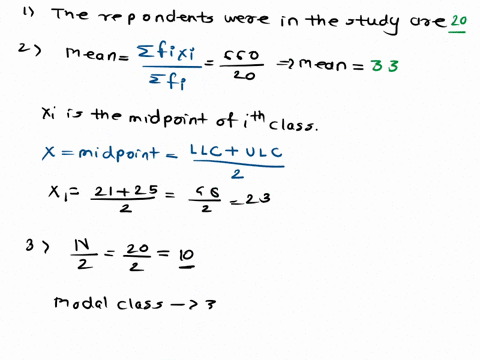 1) The repondents were in the study are 20
2) mean = Σfixi / Σfi = 660 / 20 => mean = 33
xi is the midpoint of ith class.
x = midpoint = LLC + ULC / 2
x1 = 21+25 / 2 = 46 / 2 = 23
3) N / 2 = 20 / 2 = 10
Modal class -> 3